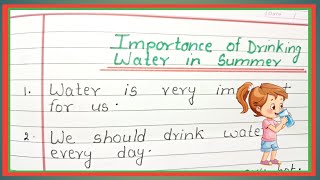 Importance of Drinking
Water in Summer
1. Water is very im t
for us.
2. We should drink wate
every day.
hot.